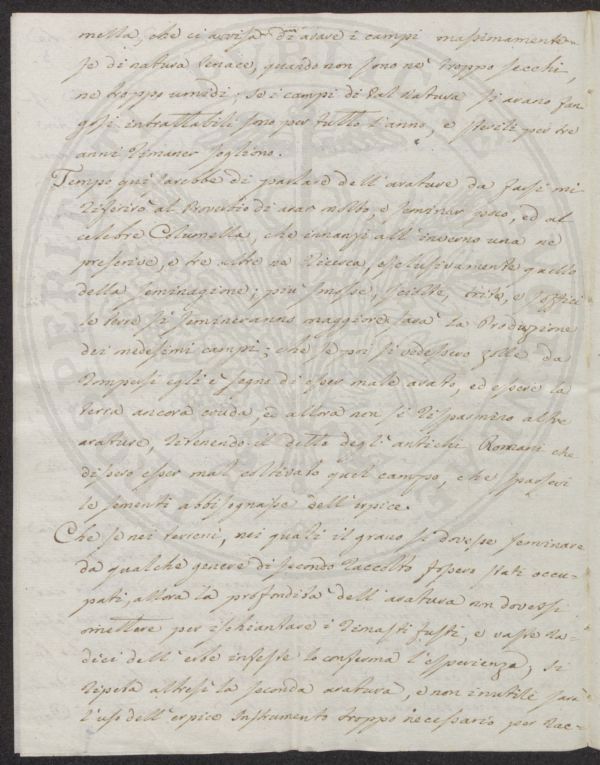 mella, che ci avvisa di arare i campi massimamente
se di natura tenace, quando non sono nè troppo secchi,
ne troppo umidi; Se i campi di tal natura si arano fan-
gosi intrattabili sono per tutto l'anno, e sterili per tre
anni rimaner sogliono.
Tempo quì sarebbe di parlare dell'arature da farsi mi
riferirò al Proverbio di arar molto, e seminar poco, ed al
celebre Columella, che innanzi all'inverno una ne
prescrive, e tre altre ne ricerca, esclusivamente quello
della seminagione; più smosse, sciolte, trite, e soffici
le terre si semineranno maggiore sarà la Produzione
dei medesimi campi; che se poi si vedessero zolle da
rompersi egli è segno di esser male arato, ed essere la
terra ancora cruda, ed allora non si risparmino altre
arature, ritenendo il detto degl'antichi Romani che
dissero esser mal coltivato quel campo, che sparsevi
le sementi abbisognasse dell'erpice.
Che se nei terreni, nei quali il grano si dovesse seminare
da qualche genere di secondo raccolto fossero stati occu-
pati, allora la profondità dell'aratura non dovessi
omettere per ischiantare i rimasti fusti, e vaste ra-
dici dell'erbe infeste lo conferma l'esperienza, si
ripeta altresì la seconda aratura, e non inutile sarà
l'uso dell'erpice Instrumento troppo necessario per rac-